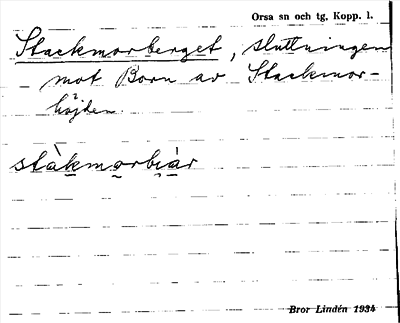 Orsa sn och tg, Kopp. l.
Stackmorberget, sluttningen
mot Born av Stackmor-
höjden.
stàkmorbiàr
Bror Lindén 1934